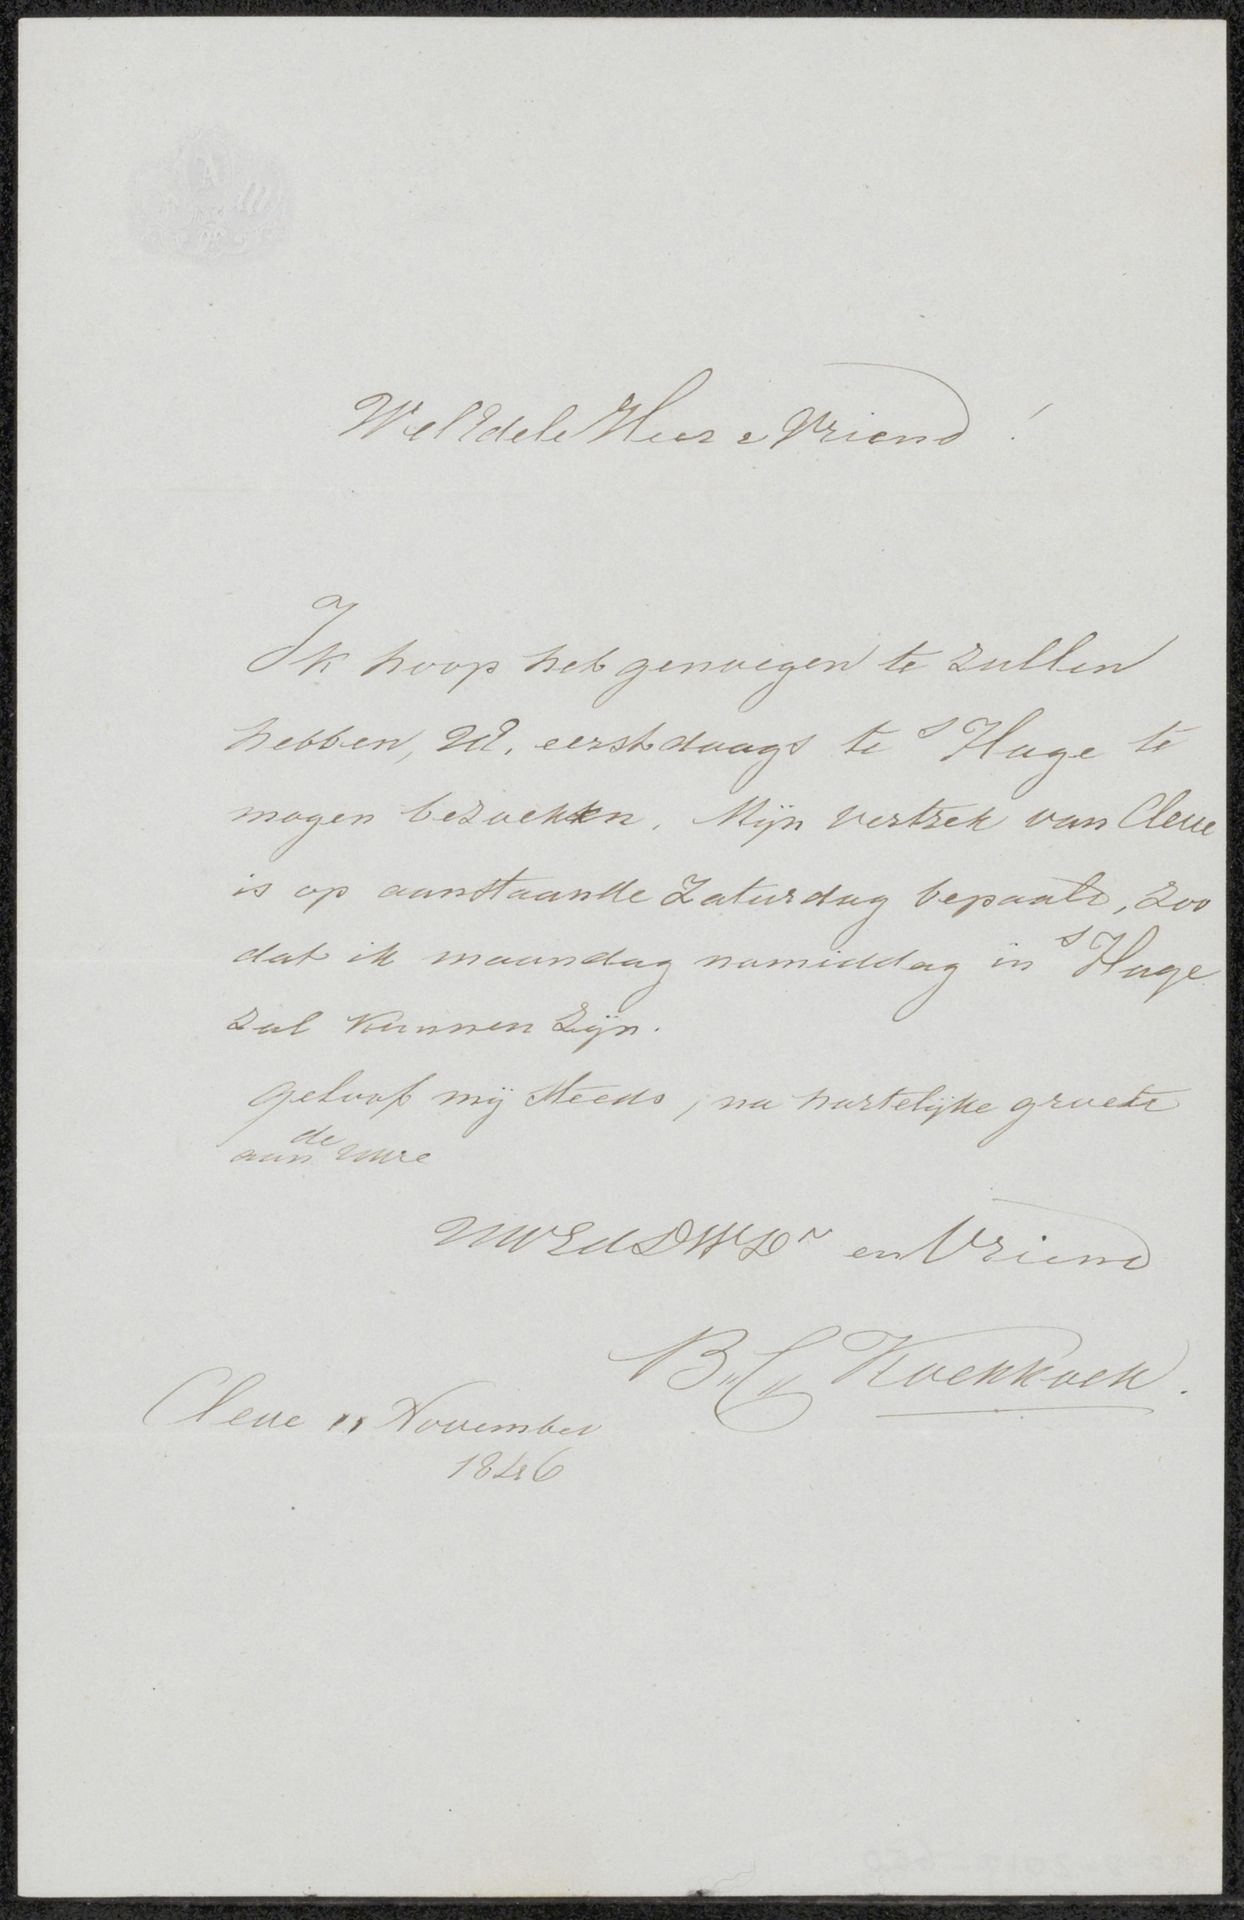 WelEdele Heer & Vriend!
Ik hoop het genoegen te zullen
hebben, UE. eerstdaags te s Hage te
mogen bezoeken. Mijn vertrek van Cleve
is op aanstaande Zaturdag bepaald, zoo
dat ik maandag namiddag in s Hage
zal kunnen zijn.
geloof mij steeds, na hartelijke groete
aan de uwe
UWEdDWDr en Vriend
B. C. Koekkoek.
Cleve 11 November
1846